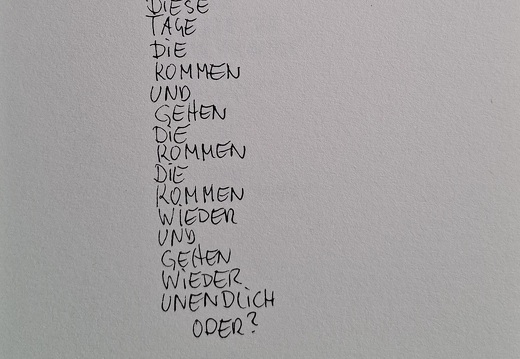 DIESE
TAGE
DIE
KOMMEN
UND
GEHEN
DIE
KOMMEN
DIE
KOMMEN
WIEDER
UND
GEHEN
WIEDER
UNENDLICH
ODER?